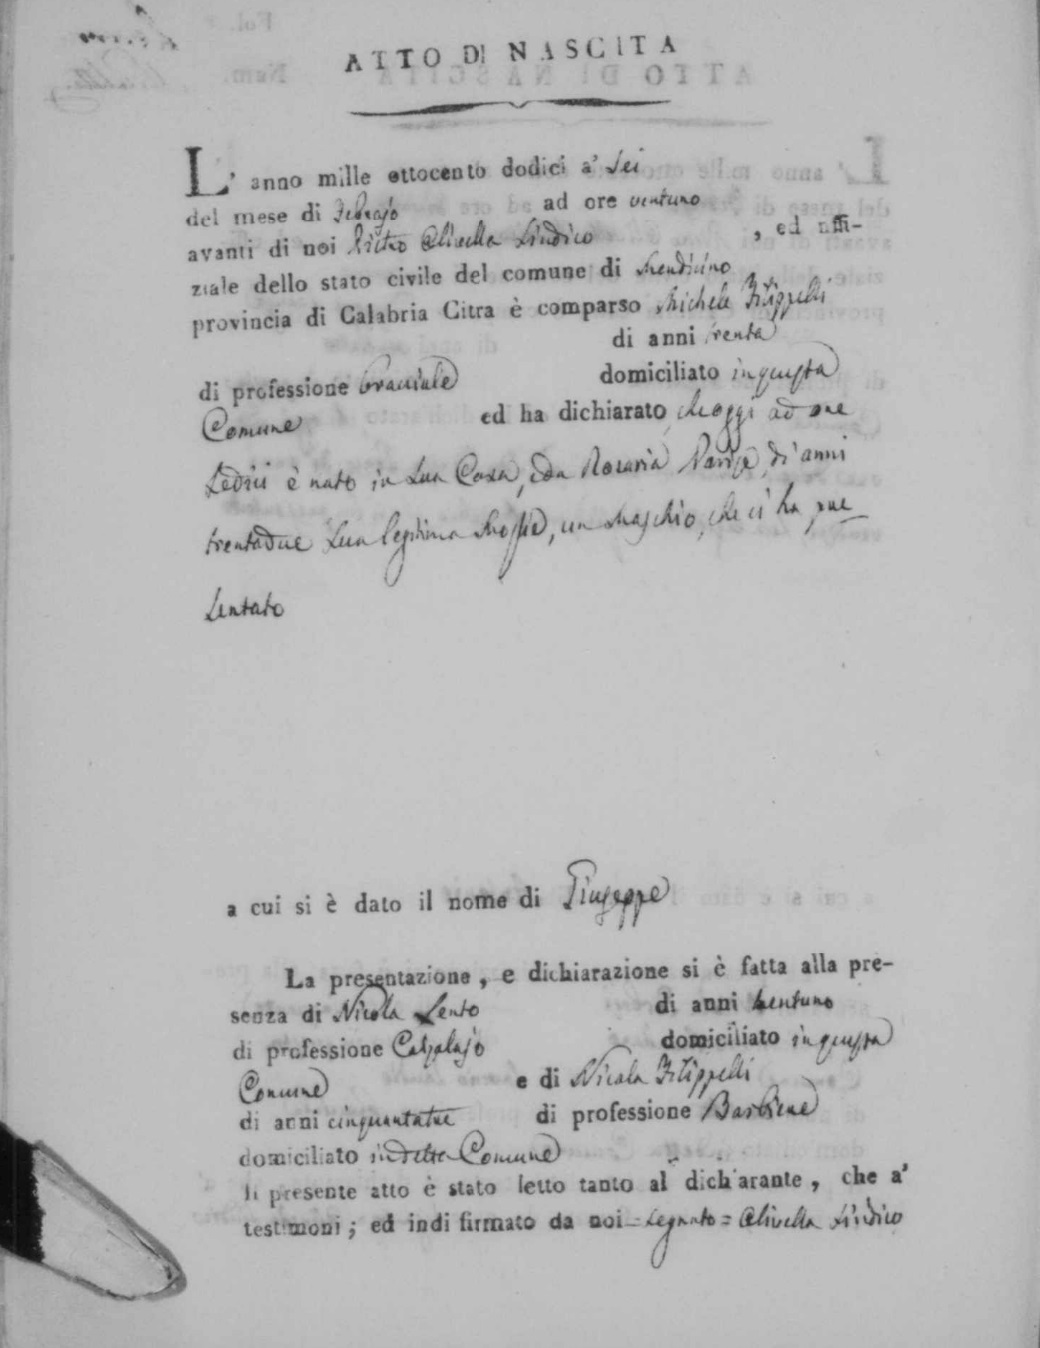 ATTO DI NASCITA
L' anno mille ottocento dodici a' Sei
del mese di Febrajo ad ore ventuno
avanti di noi Pietro Olivella Sindico , ed uffi-
ziale dello stato civile del comune di Mendicino
provincia di Calabria Citra è comparso Michele Filippelli
di anni trenta
di professione Bracciale domiciliato in questa
Comune ed ha dichiarato, che oggi ad ore
Sedici è nato in Sua Casa, e da Rosaria Parise, di anni
trentadue Sua legitima Moglie, un Maschio, che ci ha pre
sentato
a cui si è dato il nome di Giuseppe
La presentazione, e dichiarazione si è fatta alla pre-
senza di Nicola Lento di anni trentuno
di professione Calzolajo domiciliato in questa
Comune e di Nicola Filippelli
di anni cinquantatre di professione Barbiere
domiciliato in detta Comune
Il presente atto è stato letto tanto al dichiarante, che a'
testimoni; ed indi firmato da noi = Segnato = Olivella Sindico